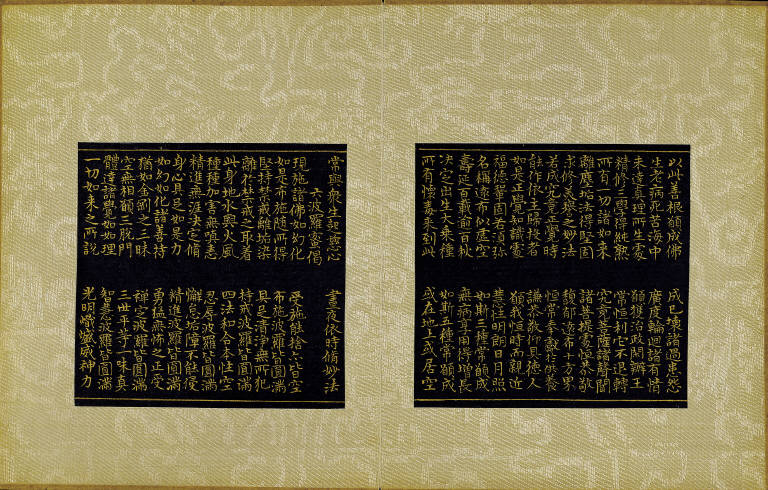 以此善根願成佛 成已壞諸過患怨
生老病死苦海中 廣度輪迴諸有情
未達真理所生處 願獲治政辯王
精修三學得純熟 常恒利它不退轉
所有一切諸如来 究竟菩薩諸聲聞
離塵垢法得堅固 諸菩提處恒恭敬
求修美譽之妙法 馥郁遠布十方界
若成究竟正覺時 恒常奉獻於供養
誰作依主歸投者 謙恭敬仰具德人
如是正覺知識處 願我恒時而親近
福德鞏固若須弥 慧性明朗日月照
名稱遠布似虛空 如斯三種常願成
壽延百載逾百秋 無病享用得增長
决定出生大乘種 如斯五種常願成
所有懷毒来到此 或在地上或居空
常興衆生起慈心 晝夜依時俻妙法
六波羅蜜偈
現施諸佛如幻化 受施能捨六皆空
如是布施随所得 布施波羅皆圓滿
堅持禁戒離垢染 具足清淨無所犯
離於禁戒之取着 持戒波羅皆圓滿
此身地水與火風 四法和合本性空
種種加害無嗔恚 忍辱波羅皆圓滿
精進無涯决定俻 懈怠垢障不能侵
身心具足如是力 精進波羅皆圓滿
如幻如化諸善持 勇猛無怖之正受
猶如金剛之三昧 禪定波羅皆圓滿
空無相願三脫門 三世平等一味真
體達諸覺如如理 智慧波羅皆圓滿
一切如来之所說 光明熾盛威神力